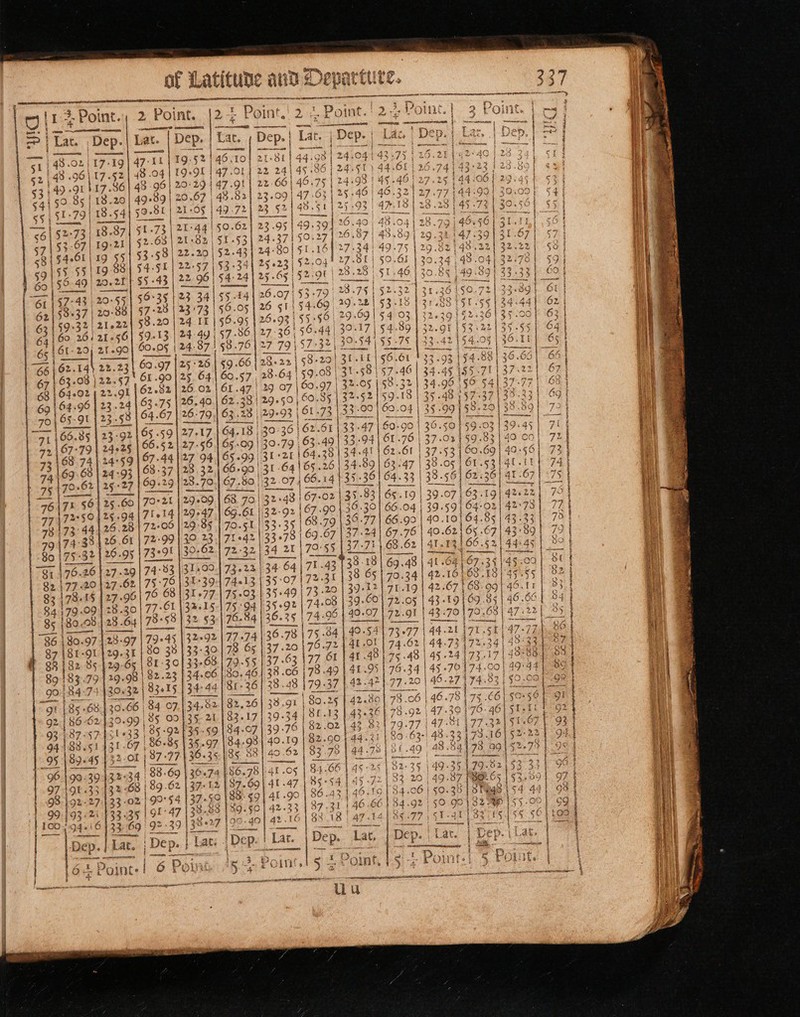 of Latitude and Departure. 337
D 1 3/4 Point. 2 Point. 2 1/4 Point. 2 1/2 Point. 2 3/4 Point. 3 Point. Dist.
Lat. Dep. Lat. Dep. Lat. Dep. Lat. Dep. Lat. Dep. Lat. Dep.
51 48.02 17.19 47.11 19.52 46.10 21.81 44.98 24.04 43.75 26.21 42.40 28 34 51
52 48.96 17.52 48.04 19.91 47.01 22 24 45.86 24.51 44.61 26.74 43.23 28.89 52
53 49.91 17.86 48 96 20.29 47.91 22 66 46.75 24.98 45.46 27.25 44.06 29.45 53
54 50 85 18.20 49.89 20.67 48.82 23.09 47.63 25.46 46.32 27.77 44.90 30.00 54
55 51.79 18.54 50.81 21.05 49.72 23 52 48.51 25.93 47.18 28.28 45.73 30.56 55
56 52.73 18.87 51.73 21.44 50.62 23.95 49.39 26.40 48.04 28.79 46.56 31.11 56
57 53.67 19.21 52.68 21.82 51.53 24.37 50.27 26.87 48.89 29.31 47.39 31.67 57
58 54.61 19 55 53.58 22.20 52.43 24.80 51.16 27.34 49.75 29.82 48.22 32.22 58
59 55 55 19 88 54.51 22.57 53.34 25.23 52.04 27.81 50.61 30.34 48.04 32.78 59
60 56 49 20.21 55.43 22 96 54.24 25.65 52.91 28.28 51.46 30.85 49.89 33.33 60
61 57.43 20.55 56.35 23 34 55.14 26.07 53.79 28.75 52.32 31.36 50.72 33.89 61
62 58.37 20.88 57.28 23.73 56.05 26 51 54.69 29.22 53.18 31.88 51.55 34.44 62
63 59.32 21.22 58.20 24 11 56.95 26.93 55.56 29.69 54 03 32.39 52.36 35.00 63
64 60 26 21.56 59.13 24.49 57.86 27 36 56.44 30.17 54.89 32.91 53.21 35.55 64
65 61.20 21.90 60.05 24.87 58.76 27 79 57.32 30.54 55.75 33.42 54.05 36.11 65
66 62.14 22.23 60.97 25.26 59.66 28.22 58.20 31.11 56.61 33.93 54.88 36.66 66
67 63.08 22.57 61.90 25 64 60.57 28.64 59.08 31.58 57.46 34.45 55.71 37.22 67
68 64.02 22.91 62.82 26 02 61.47 29 07 60.97 32.05 58.32 34.96 56 54 37.77 68
69 64.96 23.24 63.75 26.40 62.38 29.50 60.85 32.52 59.18 35.48 57.37 38.33 69
70 65.91 23.58 64.67 26.79 63.28 29.93 61.73 33.00 60.04 35.99 58.20 38.89 70
71 66.85 23.92 65.59 27.17 64.18 30.36 62.61 33.47 60.90 36.50 59.03 39.45 71
72 67.79 24.25 66.52 27.56 65.09 30.79 63.49 33.94 61.76 37.02 59.83 40 00 72
73 68 74 24.59 67.44 27 94 65.99 31.21 64.38 34.41 62.61 37.53 60.69 40.56 73
74 69.68 24.93 68.37 28 32 66.90 31.64 65.26 34.89 63.47 38.05 61.53 41.11 74
75 70.62 25.27 69.29 28.70 67.80 32.07 66.14 35.36 64.33 38.56 62.36 41.67 75
76 71 56 25.60 70.21 29.09 68 70 32.48 67.02 35.83 65.19 39.07 63.19 42.22 76
77 72.50 25.94 71.14 29.47 69.61 32.92 67.90 36.30 66.04 39.59 64.02 42.78 77
78 73.44 26.28 72.06 29.85 70.51 33.35 68.79 36.77 66.90 40.10 64.85 43.33 78
79 74.38 26.61 72.99 30 23 71.42 33.78 69.67 37.24 67.76 40.62 65.67 43.89 79
80 75.32 26.95 73.91 30.62 72.32 34 21 70.55 37.71 68.62 41.13 66.52 44.45 80
81 76.26 27.29 74.83 31.00 73.22 34 64 71.43 38 18 69.48 41.64 67.35 45.00 81
82 77.20 27.62 75.76 31.39 74.13 35.07 72.31 38 65 70.34 42.16 68.18 45.55 82
83 78.15 27.96 76 68 31.77 75.03 35.49 73.20 39.12 71.19 42.67 68.99 46.11 83
84 79.09 28.30 77.61 32.15 75.94 35.92 74.08 39.60 72.05 43.19 69 85 46.66 84
85 80.08 28.64 78.58 32 53 76.84 36.35 74.96 40.07 72.91 43.70 70.68 47.22 85
86 80.97 28.97 79.45 32.92 77.74 36.78 75.84 40.54 73.77 44.21 71.51 47.77 86
87 81.91 29.31 80 38 33.30 78 65 37.20 76.72 41.01 74.62 44.73 72.34 48.33 87
88 82 85 29.65 81.30 33.68 79.55 37.63 77 61 41.48 75.48 45.24 73.17 48.88 88
89 83.79 29.98 82.23 34.06 80.46 38.06 78.49 41.95 76.34 45.76 74.00 49.44 89
90 84.74 30.32 83.15 34.44 81.36 38.48 79.37 42.42 77.20 46.27 74.83 50.00 90
91 85.68 30.66 84 07 34.82 82.26 38.91 80.25 42.89 78.06 46.78 75.66 50.56 91
92 86 62 30.99 85 00 35.21 83.17 39.34 81.13 43.36 78.92 47.30 76.46 51.11 92
93 87.57 31.33 85.92 35.59 84.07 39.76 82.02 43 83 79.77 47.81 77.32 51.67 93
94 88.51 31.67 86.85 35.97 84.98 40.19 82.90 44.31 80 63 48.33 78.16 52.22 94
95 89.45 32.01 87.77 36.35 85 88 40 62 83 78 44.78 81.49 48.84 78 99 52.78 95
96 90.39 32.34 88.69 36.74 86.78 41.05 84.66 45.25 82.35 49.35 79.82 53 33 96
97 91.33 32 68 89.62 37.12 87.69 41.47 85.54 45.72 83 20 49.87 80.65 53.89 97
98 92.27 33.02 90.54 37.50 88.59 41.90 86.43 46.19 84.06 50.38 81.48 54 44 98
99 93.21 33.35 91.47 38.88 89.50 42.33 87.31 46.66 84.92 50 90 82 55.00 99
100 94.16 33 69 92.39 38.27 90.40 42.16 88.18 47.14 85.77 51.41 83 15 55 56 100
Dep. Lat. Dep. Lat. Dep. Lat. Dep. Lat. Dep. Lat. Dep. Lat.
6 1/4 Point. 6 Point. 5 3/4 Point. 5 1/2 Point. 5 1/4 Point. 5 Point.
U u